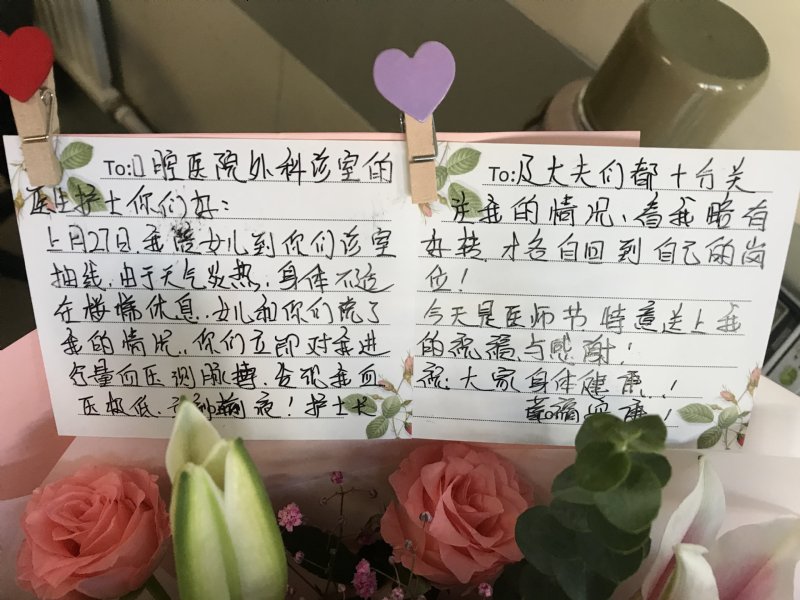 To:口腔医院外科诊室的
医生护士你们好:
上月27日,我陪女儿到你们诊室
抽线,由于天气炎热,身体不适
在楼梯休息,女儿和你们说了
我的情况,你们立即对我进
行量血压测脉搏,发现我血
压极低,护士长
To:及大夫们都十分关
注我的情况,看我略有
好转,才各自回到自己的岗
位!
今天是医师节 特意送上我
的祝福与感谢!
祝:大家身体健康!